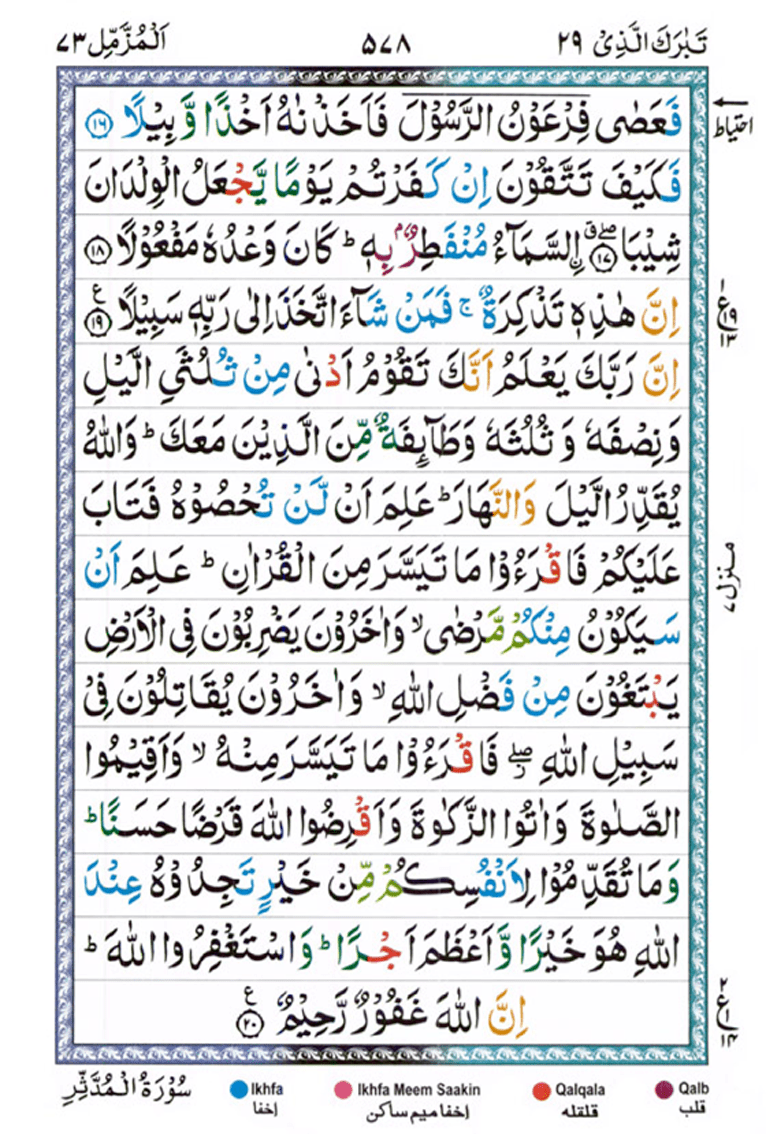 تَبٰرَكَ الَّذِیْ ۲۹ ۵۷۸ اَلْمُزَّمِّل ۷۳
فَعَصٰى فِرْعَوْنُ الرَّسُوْلَ فَاَخَذْنٰهُ اَخْذًا وَّبِیْلًا ۱۶
احتیاط
فَكَیْفَ تَتَّقُوْنَ اِنْ كَفَرْتُمْ یَوْمًا یَّجْعَلُ الْوِلْدَانَ
شِیْبَاۖۗ ۱۷ ِ۟السَّمَآءُ مُنْفَطِرٌۢ بِهٖ ؕ كَانَ وَعْدُهٗ مَفْعُوْلًا ۱۸
اِنَّ هٰذِهٖ تَذْكِرَةٌ ۚ فَمَنْ شَآءَ اتَّخَذَ اِلٰى رَبِّهٖ سَبِیْلًا ۱۹ ع
۱ ع ۱۹ ۱۳
اِنَّ رَبَّكَ یَعْلَمُ اَنَّكَ تَقُوْمُ اَدْنٰى مِنْ ثُلُثَیِ الَّیْلِ
وَنِصْفَهٗ وَثُلُثَهٗ وَطَآىِٕفَةٌ مِّنَ الَّذِیْنَ مَعَكَ ؕ وَاللّٰهُ
یُقَدِّرُ الَّیْلَ وَالنَّهَارَ ؕ عَلِمَ اَنْ لَّنْ تُحْصُوْهُ فَتَابَ
عَلَیْكُمْ فَاقْرَءُوْا مَا تَیَسَّرَ مِنَ الْقُرْاٰنِ ؕ عَلِمَ اَنْ
منزل ۷
سَیَكُوْنُ مِنْكُمْ مَّرْضٰى ۙ وَاٰخَرُوْنَ یَضْرِبُوْنَ فِی الْاَرْضِ
یَبْتَغُوْنَ مِنْ فَضْلِ اللّٰهِ ۙ وَاٰخَرُوْنَ یُقَاتِلُوْنَ فِیْ
سَبِیْلِ اللّٰهِ ۖ٘ فَاقْرَءُوْا مَا تَیَسَّرَ مِنْهُ ۙ وَاَقِیْمُوا
الصَّلٰوةَ وَاٰتُوا الزَّكٰوةَ وَاَقْرِضُوا اللّٰهَ قَرْضًا حَسَنًا ؕ
وَمَا تُقَدِّمُوْا لِاَنْفُسِكُمْ مِّنْ خَیْرٍ تَجِدُوْهُ عِنْدَ
اللّٰهِ هُوَ خَیْرًا وَّاَعْظَمَ اَجْرًا ؕ وَاسْتَغْفِرُوا اللّٰهَ ؕ
اِنَّ اللّٰهَ غَفُوْرٌ رَّحِیْمٌ ۲۰ ع
۲ ع ۱ ۱۴
سُوْرَةُ الْمُدَّثِّرِ Ikhfa Ikhfa Meem Saakin Qalqala Qalb
إخفا إخفا میم ساکن قلقله قلب